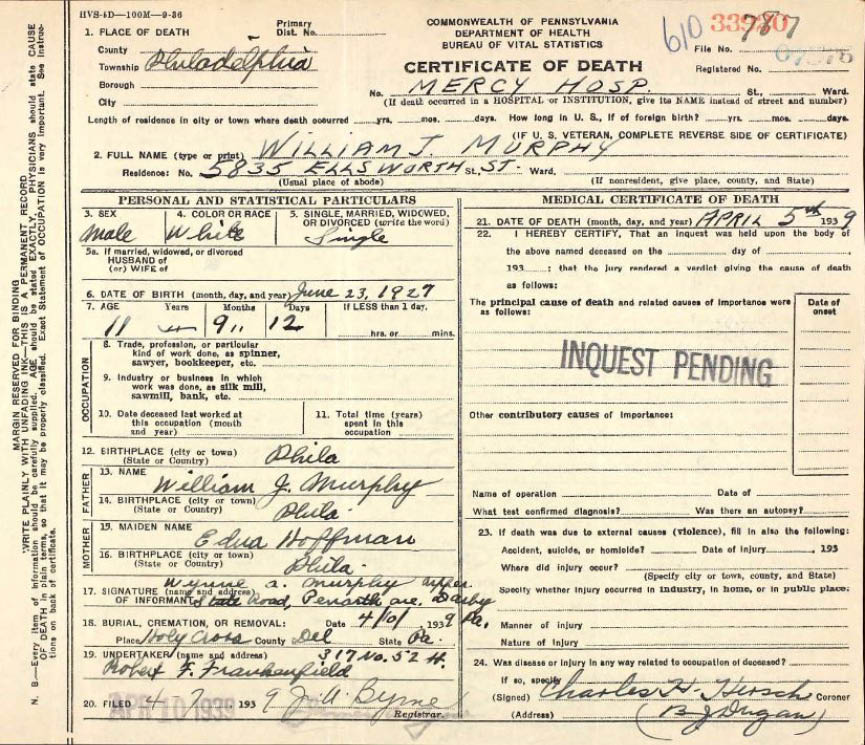 HVS-4D—100M—9-36
COMMONWEALTH OF PENNSYLVANIA
DEPARTMENT OF HEALTH
BUREAU OF VITAL STATISTICS
CERTIFICATE OF DEATH
610
File No.
Registered No.
1. PLACE OF DEATH
Primary
Dist. No.
County
Township Philadelphia
Borough
City
No. MERCY HOSP. St., Ward.
(If death occurred in a HOSPITAL or INSTITUTION, give its NAME instead of street and number)
Length of residence in city or town where death occurred yrs. mos. days. How long in U. S., if of foreign birth? yrs. mos. days.
(IF U. S. VETERAN, COMPLETE REVERSE SIDE OF CERTIFICATE)
2. FULL NAME (type or print) WILLIAM J. MURPHY
Residence: No. 5835 ELLSWORTH ST. St., Ward.
(Usual place of abode) (If nonresident, give place, county, and State)
PERSONAL AND STATISTICAL PARTICULARS
3. SEX
Male
4. COLOR OR RACE
White
5. SINGLE, MARRIED, WIDOWED,
OR DIVORCED (write the word)
Single
5a. If married, widowed, or divorced
HUSBAND of
(or) WIFE of
6. DATE OF BIRTH (month, day, and year) June 23, 1927
7. AGE Years Months Days If LESS than 1 day,
11 9 12 hrs. or mins.
OCCUPATION
8. Trade, profession, or particular
kind of work done, as spinner,
sawyer, bookkeeper, etc.
9. Industry or business in which
work was done, as silk mill,
sawmill, bank, etc.
10. Date deceased last worked at
this occupation (month
and year)
11. Total time (years)
spent in this
occupation
12. BIRTHPLACE (city or town) Phila
(State or Country)
FATHER
13. NAME William J. Murphy
14. BIRTHPLACE (city or town) Phila
(State or Country)
MOTHER
15. MAIDEN NAME Edna Hoffman
16. BIRTHPLACE (city or town) Phila
(State or Country)
17. SIGNATURE (name and address) Wynne A. Murphy Upper
OF INFORMANT State Road, Penarth ave. Darby Pa.
18. BURIAL, CREMATION, OR REMOVAL: Date 4/10/ 1939
Place Holy Cross County Del State Pa.
19. UNDERTAKER (name and address) 317 No. 52 St.
Robert F. Frankenfield
20. FILED 4-7 1939 J. A. Byrne
APR 10 1939
Registrar
MEDICAL CERTIFICATE OF DEATH
21. DATE OF DEATH (month, day, and year) APRIL 5th 1939
22. I HEREBY CERTIFY, That an inquest was held upon the body of
the above named deceased on the day of
193 ; that the jury rendered a verdict giving the cause of death
as follows:
The principal cause of death and related causes of importance were
as follows:
Date of
onset
INQUEST PENDING
Other contributory causes of importance:
Name of operation Date of
What test confirmed diagnosis? Was there an autopsy?
23. If death was due to external causes (violence), fill in also the following:
Accident, suicide, or homicide? Date of injury , 193
Where did injury occur?
(Specify city or town, county, and State)
Specify whether injury occurred in industry, in home, or in public place:
Manner of injury
Nature of injury
24. Was disease or injury in any way related to occupation of deceased?
If so, specify
(Signed) Charles H. Hersch Coroner
(Address) (B J Dugan)
MARGIN RESERVED FOR BINDING
WRITE PLAINLY WITH UNFADING INK—THIS IS A PERMANENT RECORD
N. B.—Every item of information should be carefully supplied. AGE should be stated EXACTLY. PHYSICIANS should state CAUSE
OF DEATH in plain terms, so that it may be properly classified. Exact Statement of OCCUPATION is very important. See instruc-
tions on back of certificate.